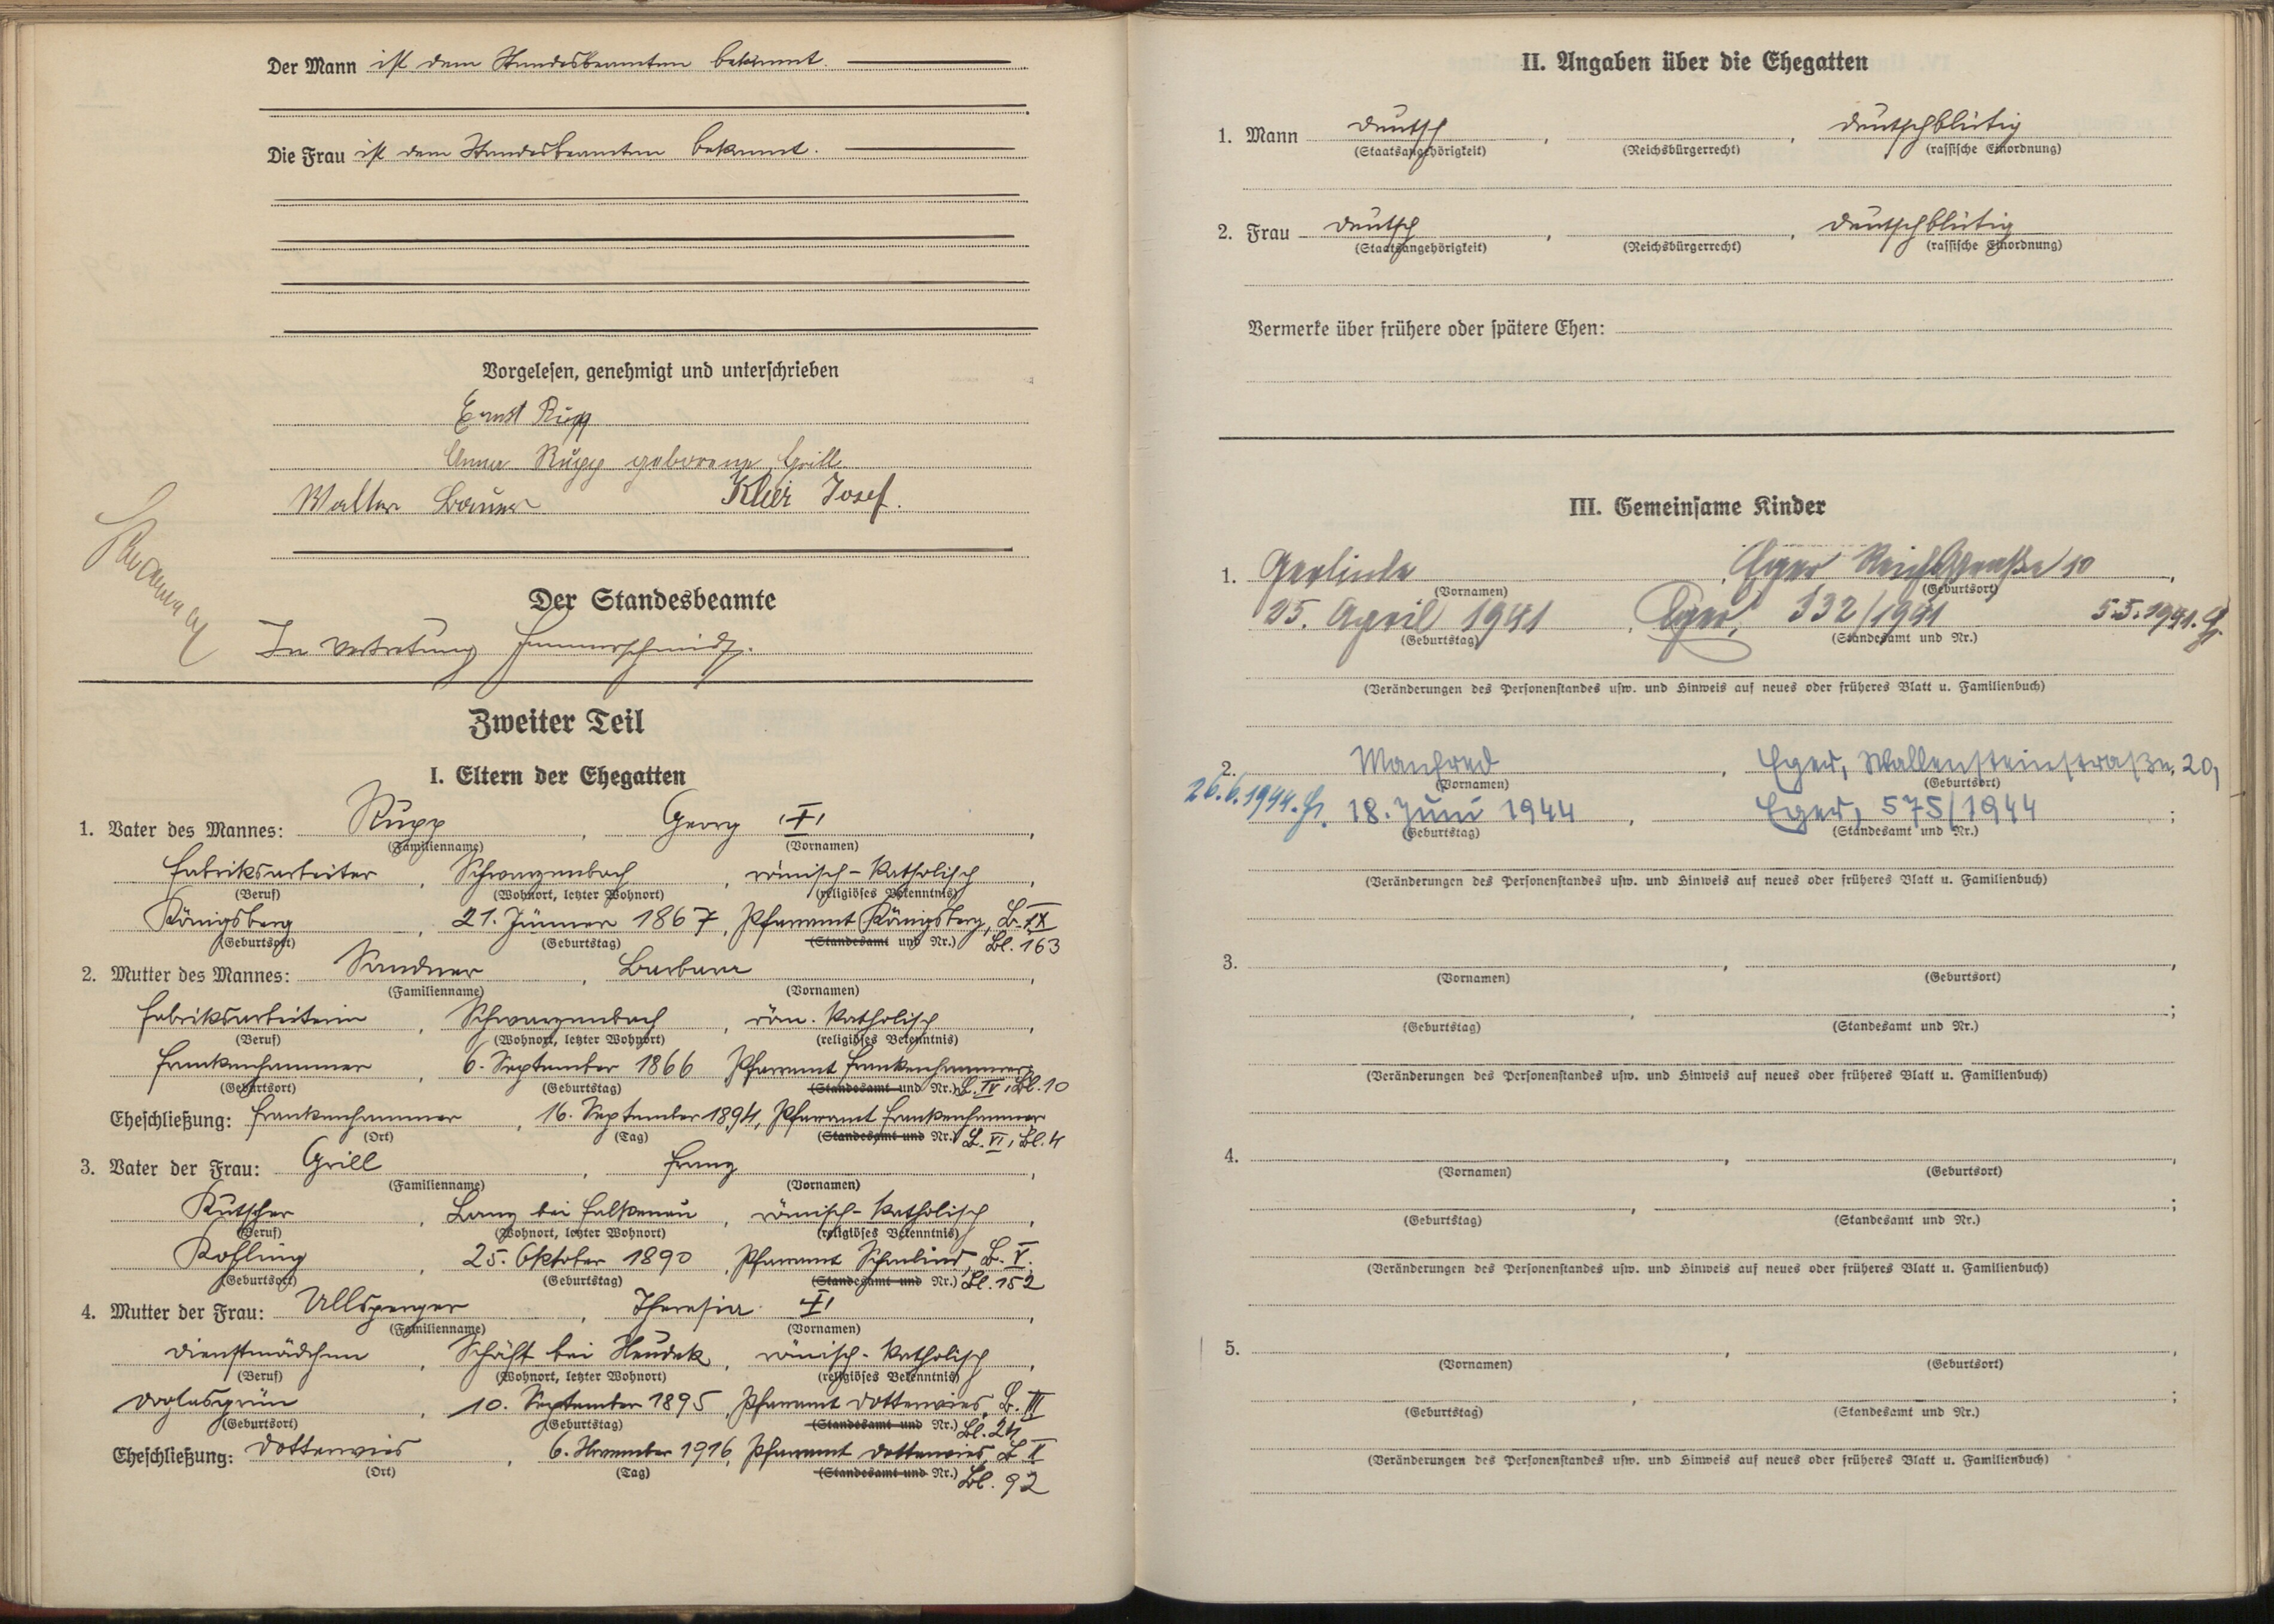 Der Mann ist dem Standesbeamten bekannt.
Die Frau ist dem Standesbeamten bekannt.
Vorgelesen, genehmigt und unterschrieben
Ernst Rupp
Anna Rupp geborene Grill
Walter Bauer Klier Josef.
Der Standesbeamte
In Vertretung Hammerschmidt.
Zweiter Teil
I. Eltern der Ehegatten
1. Vater des Mannes: Rupp, Georg
(Familienname) (Vornamen)
Fabriksarbeiter, Schwarzenbach, römisch-katholisch,
(Beruf) (Wohnort, letzter Wohnort) (religiöses Bekenntnis)
Königsberg, 21. Jänner 1867, Pfarramt Königsberg, B. IX
(Geburtsort) (Geburtstag) (Standesamt und Nr.) Bl. 163
2. Mutter des Mannes: Sandner, Barbara,
(Familienname) (Vornamen)
Fabriksarbeiterin, Schwarzenbach, röm. katholisch,
(Beruf) (Wohnort, letzter Wohnort) (religiöses Bekenntnis)
Frankenhammer, 6. September 1866 Pfarramt Frankenhammer,
(Geburtsort) (Geburtstag) (Standesamt und Nr.) B. IV, Bl. 10
Eheschließung: Frankenhammer, 16. September 1894, Pfarramt Frankenhammer
(Ort) (Tag) (Standesamt und Nr.) B. VI, Bl. 4
3. Vater der Frau: Grill, Franz,
(Familienname) (Vornamen)
Kutscher, Lanz bei Falkenau, römisch-katholisch,
(Beruf) (Wohnort, letzter Wohnort) (religiöses Bekenntnis)
Kohling, 25. Oktober 1890, Pfarramt Schönlind, B. V.
(Geburtsort) (Geburtstag) (Standesamt und Nr.) Bl. 152
4. Mutter der Frau: Ullsperger, Theresia
(Familienname) (Vornamen)
Dienstmädchen, Schäft bei Neudek, römisch-katholisch,
(Beruf) (Wohnort, letzter Wohnort) (religiöses Bekenntnis)
Doglasgrün, 10. September 1895, Pfarramt Dottenwies, B. III
(Geburtsort) (Geburtstag) (Standesamt und Nr.) Bl. 24
Eheschließung: Dottenwies, 6. November 1916, Pfarramt Dottenwies, B. II
(Ort) (Tag) (Standesamt und Nr.) Bl. 92
II. Angaben über die Ehegatten
1. Mann deutsch, , deutschblütig
(Staatsangehörigkeit) (Reichsbürgerrecht) (rassische Einordnung)
2. Frau deutsch, , deutschblütig
(Staatsangehörigkeit) (Reichsbürgerrecht) (rassische Einordnung)
Vermerke über frühere oder spätere Ehen:
III. Gemeinsame Kinder
1. Gerlinde, Eger Reichsstraße 10,
(Vornamen) (Geburtsort)
25. April 1941, Eger, 332/1941 5.5.1941.
(Geburtstag) (Standesamt und Nr.)
(Veränderungen des Personenstandes usw. und Hinweis auf neues oder früheres Blatt u. Familienbuch)
2. Manfred, Eger, Wallensteinstraße, 20,
(Vornamen) (Geburtsort)
26.6.1944. 18. Juni 1944, Eger, 575/1944;
(Geburtstag) (Standesamt und Nr.)
(Veränderungen des Personenstandes usw. und Hinweis auf neues oder früheres Blatt u. Familienbuch)
3. , ,
(Vornamen) (Geburtsort)
, ;
(Geburtstag) (Standesamt und Nr.)
(Veränderungen des Personenstandes usw. und Hinweis auf neues oder früheres Blatt u. Familienbuch)
4. , ,
(Vornamen) (Geburtsort)
, ;
(Geburtstag) (Standesamt und Nr.)
(Veränderungen des Personenstandes usw. und Hinweis auf neues oder früheres Blatt u. Familienbuch)
5. , ,
(Vornamen) (Geburtsort)
, ;
(Geburtstag) (Standesamt und Nr.)
(Veränderungen des Personenstandes usw. und Hinweis auf neues oder früheres Blatt u. Familienbuch)